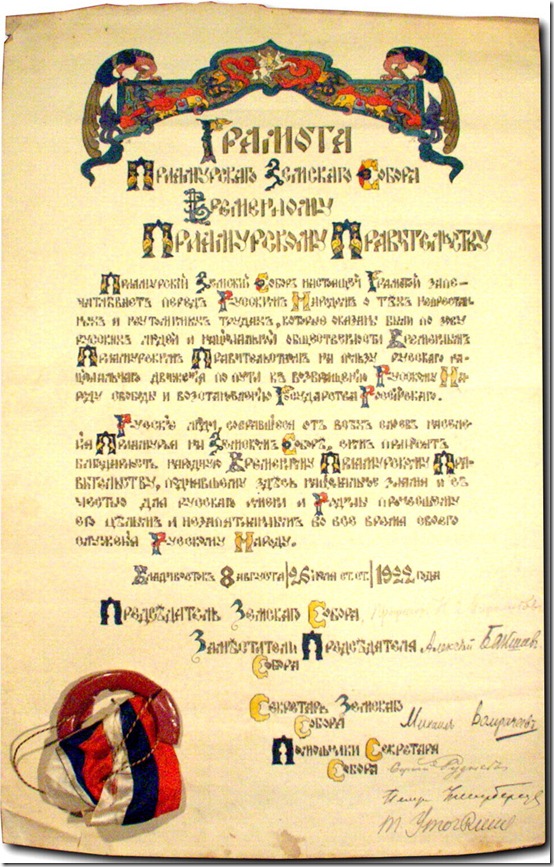 Грамота
Приамурскаго Земскаго Собора
Временному
Приамурскому Правительству
Приамурскій Земскій Соборъ настоящей Грамотой запе-
чатлѣваетъ передъ Русскимъ Народомъ о тѣхъ непреста-
нныхъ и неутомимыхъ трудахъ, которые оказаны были по зову
русскихъ людей и національной общественности Временнымъ
Приамурскимъ Правительствомъ на пользу русскаго на-
ціональнаго движенія по пути къ возвращенію Русскому На-
роду свободы и возстановленію Государства Россійскаго.
Русскіе люди, собравшіеся отъ всѣхъ слоевъ населе-
нія Приамурья на Земскій Соборъ, симъ
благодарность народную Временному Приамурскому Пра-
вительству, поднявшему здѣсь національное знамя и съ
честью для русскаго имени и Родины пронесшему
его цѣлымъ и незапятнаннымъ во все время своего
служенія Русскому Народу.
Владивостокъ 8 августа/26 іюля ст. ст./1922 года
Предсѣдатель Земскаго Собора,
Замѣстители Предсѣдателя Алексѣй Бакшеев
Собора
Секретарь Земскаго
Собора Михаилъ
Помощники Секретаря
Собора Сергѣй Рудневъ